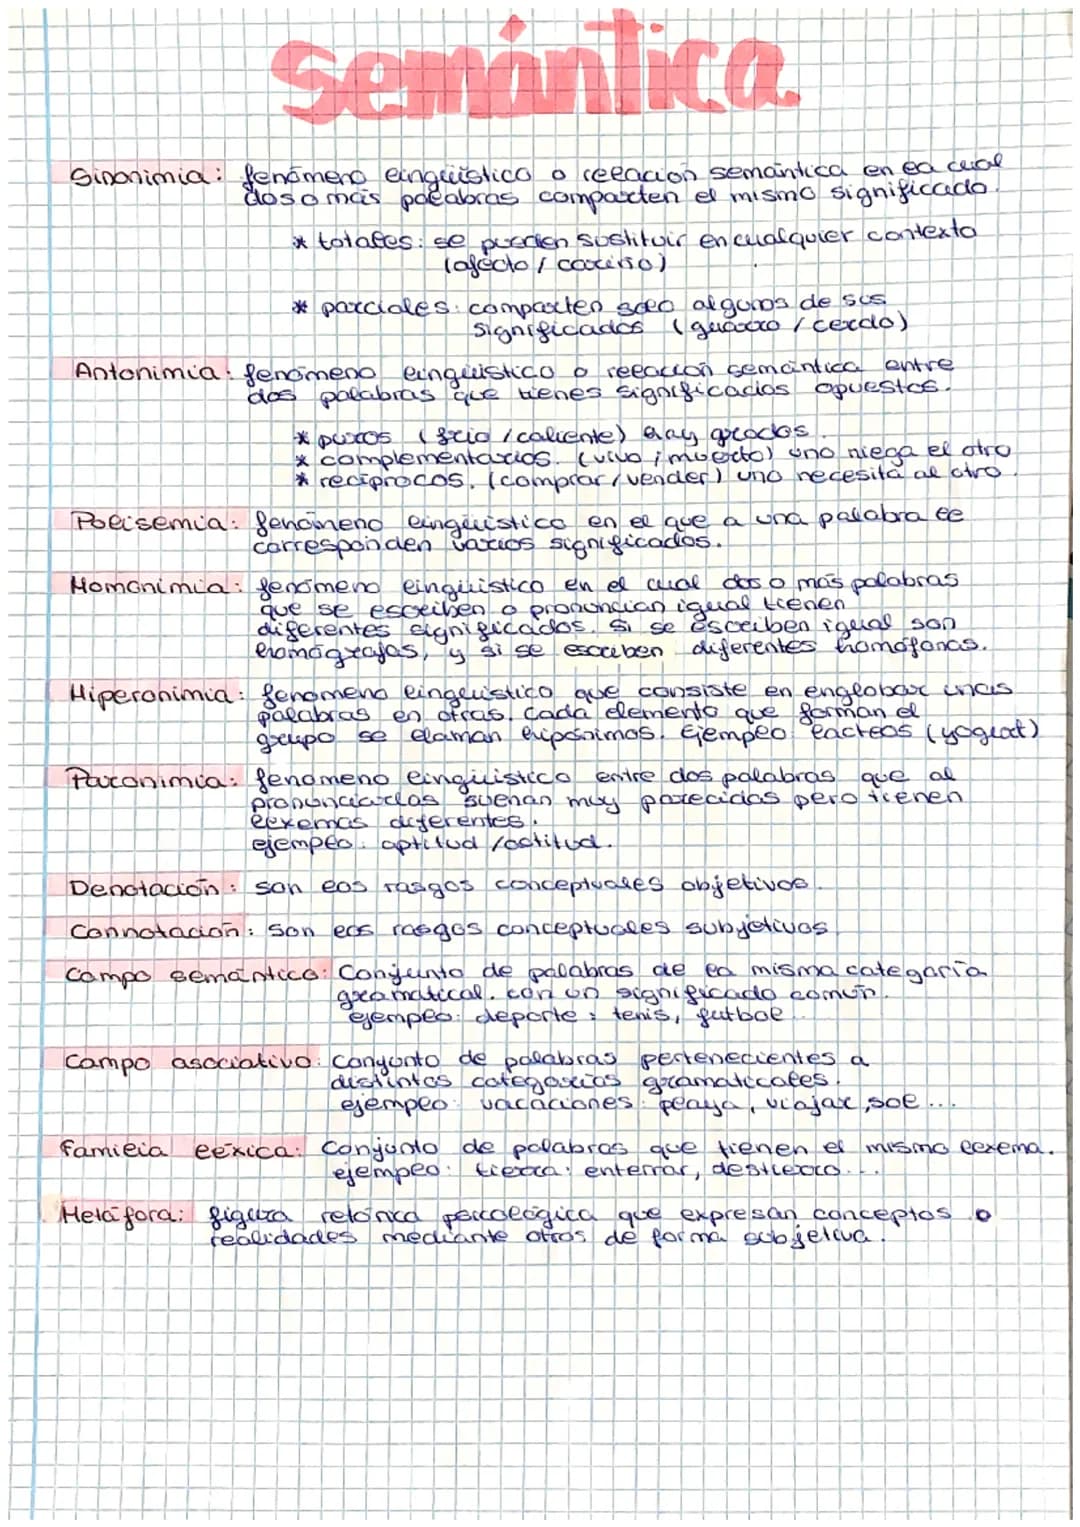 semántica
Sinonimia: fenómeno lingüístico o relación semántica en la cual
dos o más palabras comparten el mismo significado.
* totales: se pueden sustituir en cualquier contexto
(afecto / cariño)
* parciales: comparten solo algunos de sus
significados (guarro / cerdo)
Antonimia: fenómeno lingüístico o relación semántica entre
dos palabras que tienes significados opuestos.
* puros (frio / caliente) hay grados.
* complementarios. (vivo / muerto) uno niega el otro
* recíprocos. (comprar / vender) uno necesita al otro.
Polisemia: fenómeno lingüístico en el que a una palabra le
corresponden varios significados.
Homonimia: fenómeno lingüístico en el cual dos o más palabras
que se escriben o pronuncian igual tienen
diferentes significados. Si se escriben igual son
homógrafas, y si se escriben diferentes homófonas.
Hiperonimia: fenomeno lingüistico que consiste en englobar unas
palabras en otras. Cada elemento que forman el
grupo se llaman hipónimos. Ejemplo: lacteos (yogurt)
Paronimia: fenómeno lingüístico entre dos palabras que al
pronunciarlas suenan muy parecidas pero tienen
lexemas diferentes.
ejemplo: aptitud / actitud.
Denotación: son los rasgos conceptuales objetivos.
Connotación: Son los rasgos conceptuales subjetivos.
Campo semántico: Conjunto de palabras de la misma categoría
gramatical. con un significado común.
ejemplo: deporte: tenis, futbol...
Campo asociativo: Conjunto de palabras pertenecientes a
distintas categorías gramaticales.
ejemplo: vacaciones: playa, viajar, sol...
Familia léxica: Conjunto de palabras que tienen el mismo lexema.
ejemplo: tierra: enterrar, destierro...
Metáfora: figura retórica psicológica que expresan conceptos o
realidades mediante otros de forma subjetiva.